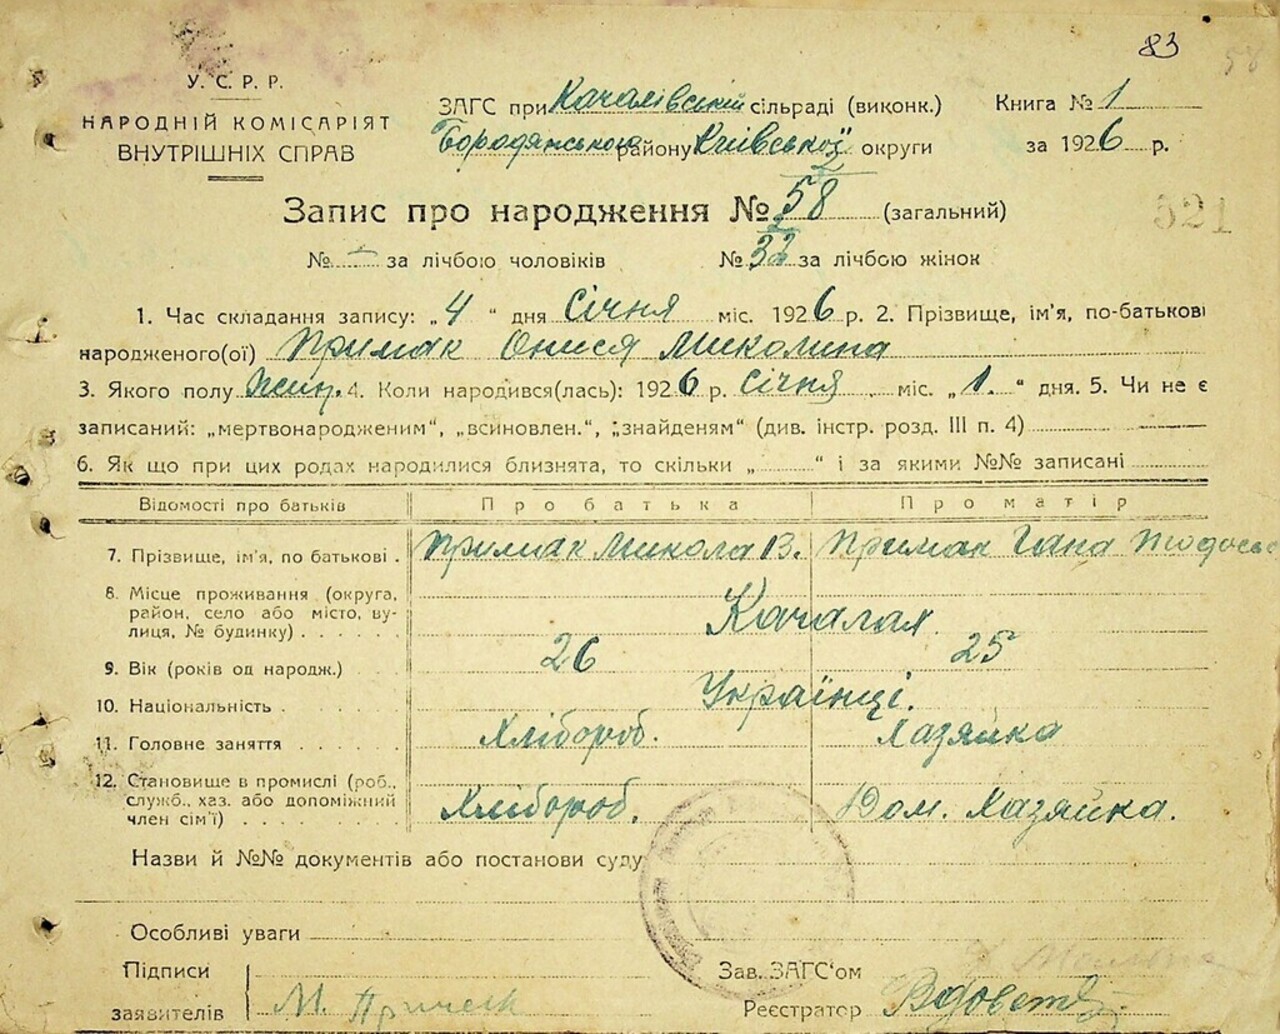 83
58
У. С. Р. Р.
НАРОДНІЙ КОМІСАРІЯТ
ВНУТРІШНІХ СПРАВ
ЗАГС при Качалівській сільраді (виконк.)
Бородянського району Київської округи
Книга № 1
за 1926 р.
Запис про народження № 58 (загальний)
621
№ — за лічбою чоловіків № 32 за лічбою жінок
1. Час складання запису: „4“ дня Січня міс. 1926 р. 2. Прізвище, ім'я, по-батькові
народженого(ої) Примак Онися Миколина
3. Якого полу Жин. 4. Коли народився(лась): 1926 р. Січня міс. „1.“ дня. 5. Чи не є
записаний: „мертвонародженим“, „всиновлен.“, „знайденям“ (див. інстр. розд. III п. 4)
6. Як що при цих родах народилися близнята, то скільки „ “ і за якими №№ записані
Відомості про батьків Про батька Про матір
7. Прізвище, ім'я, по батькові . Примак Микола В. Примак Гапа Тодосьо
8. Місце проживання (округа,
район, село або місто, ву-
лиця, № будинку) . . . . . . Качалах.
9. Вік (років од народж.) . . . 26 25
10. Національність . . . . . Українці.
11. Головне заняття . . . . . . Хлібороб. Хазяйка
12. Становище в промислі (роб.,
служб., хаз. або допоміжний
член сім'ї) . . . . . . . . Хлібороб. Дом. Хазяйка.
Назви й №№ документів або постанови суду
Особливі уваги
Підписи
заявителів М. Примак
Зав. ЗАГС'ом
Реєстратор